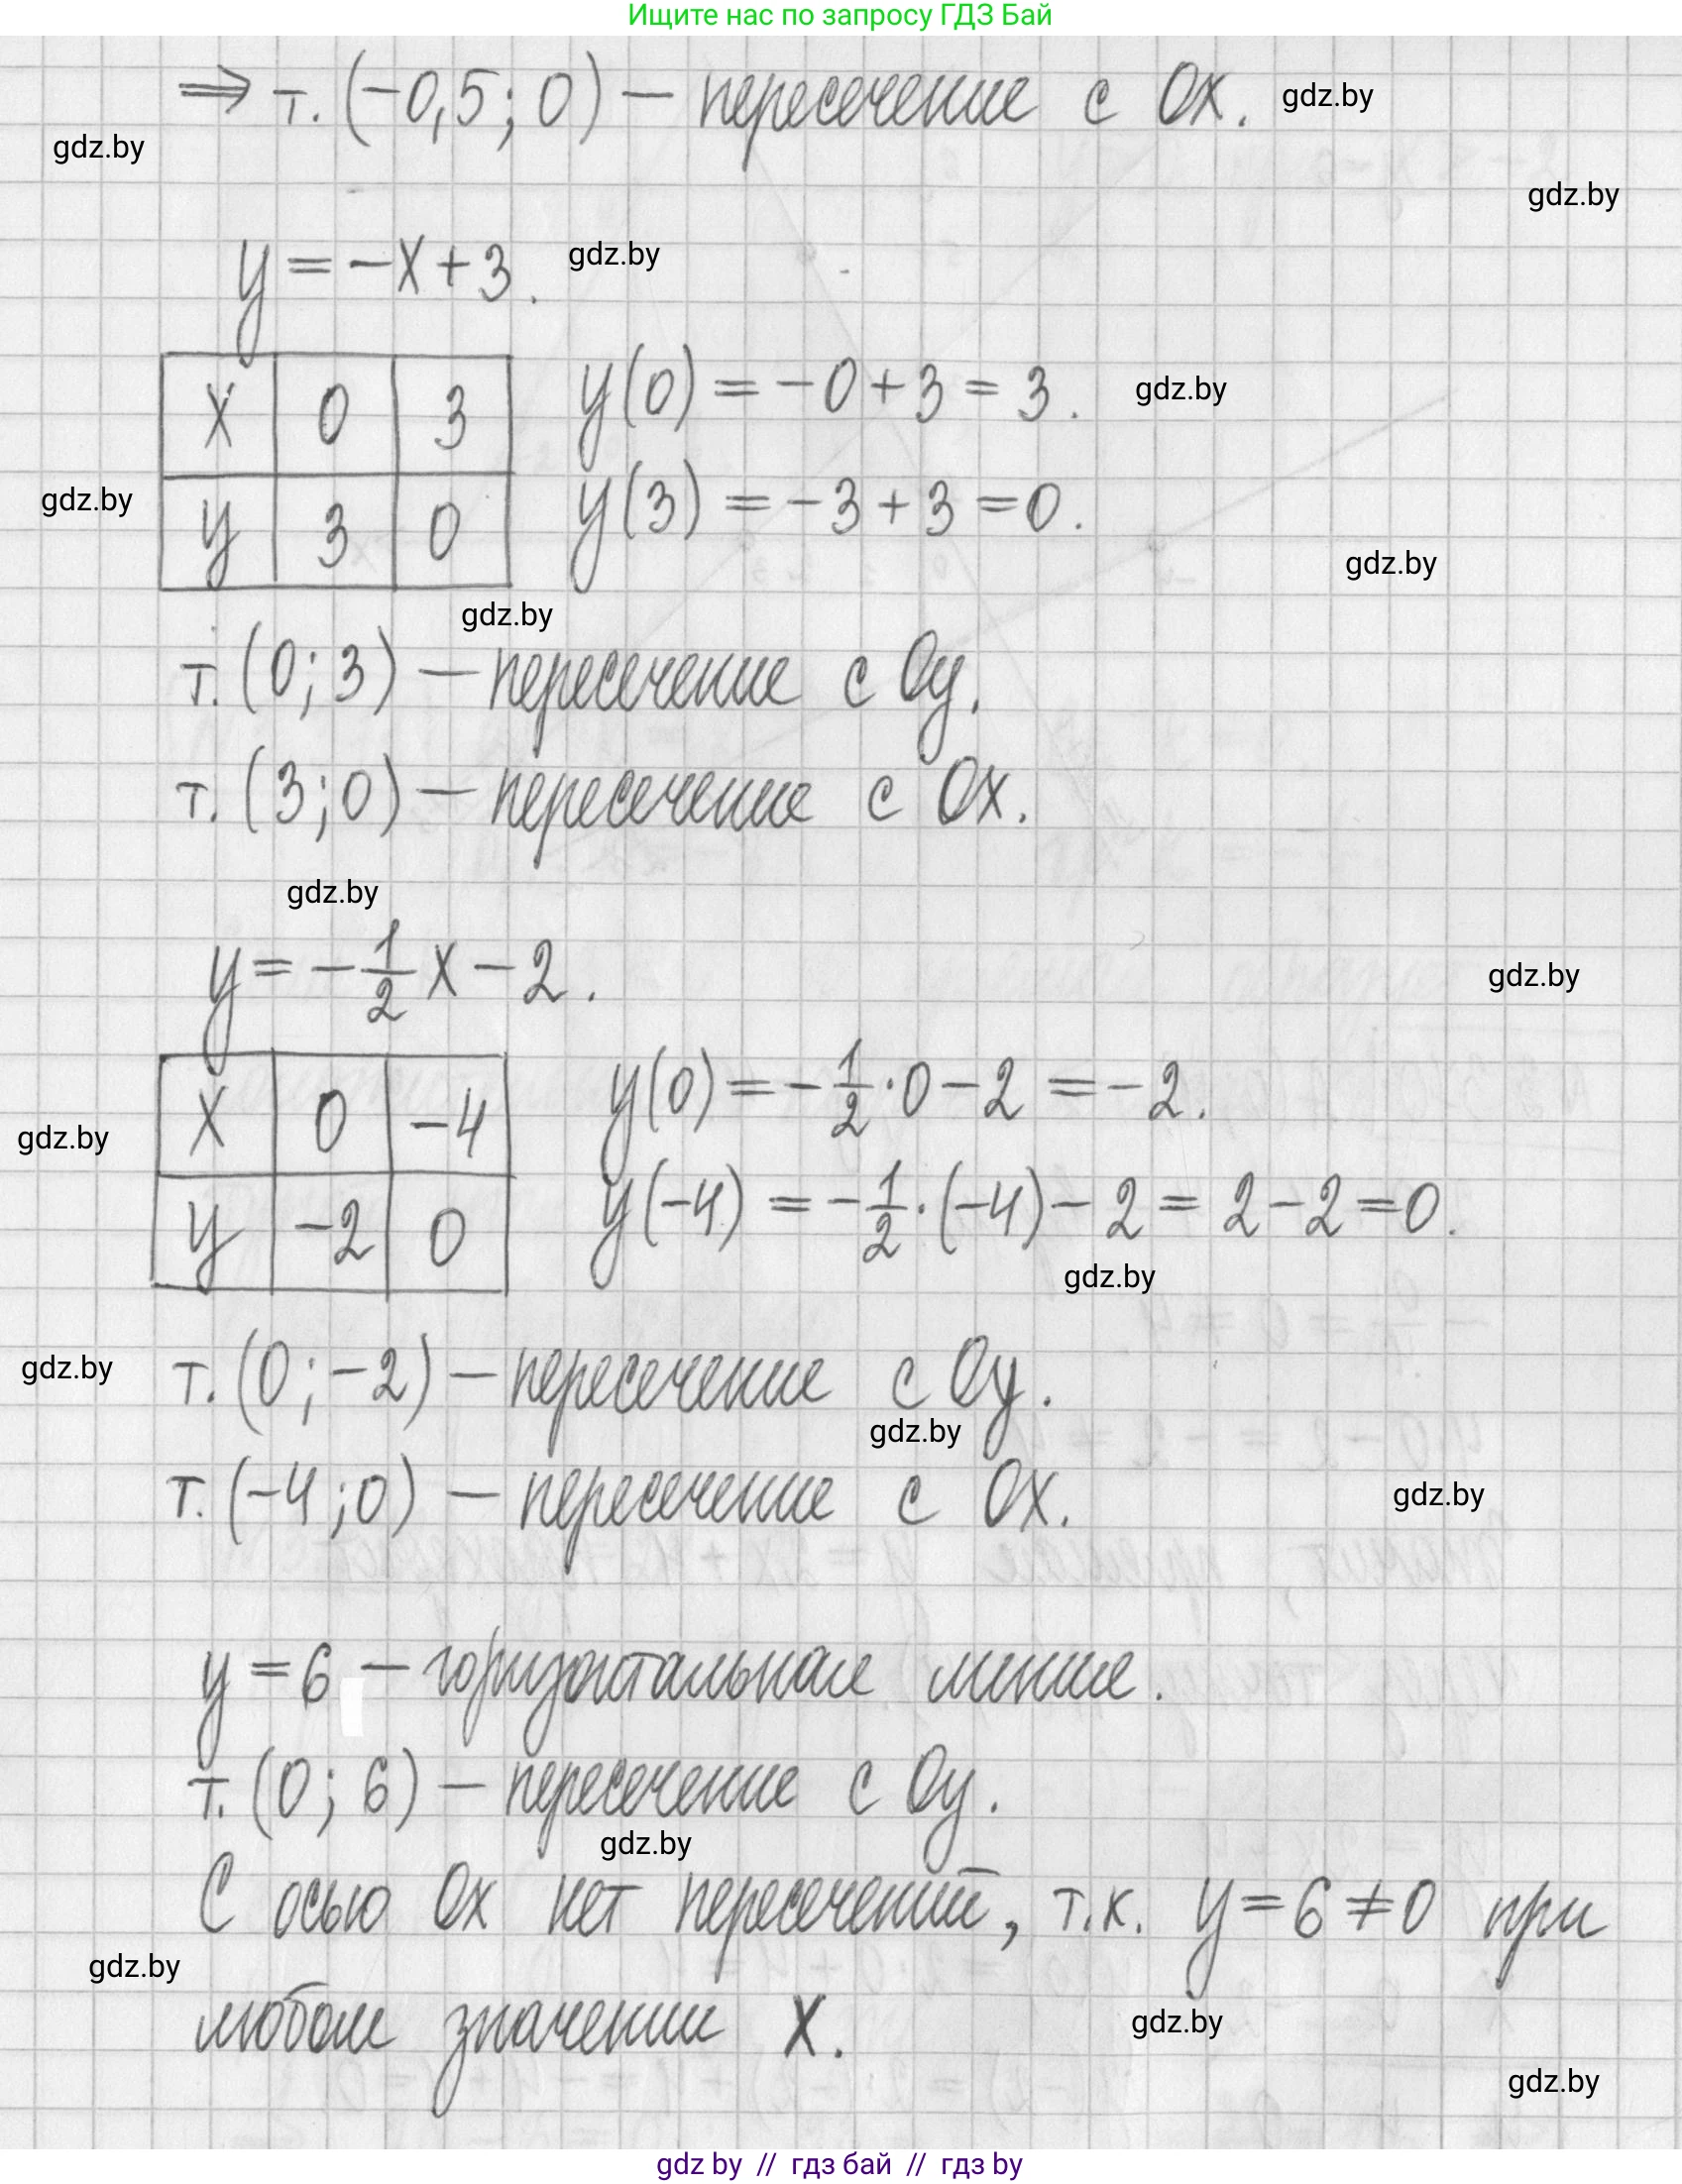 Ищите нас по запросу ГДЗ Бай
⇒ т. (-0,5; 0) — пересечение с Ox. gdz.by
gdz.by
gdz.by
y = -x + 3. gdz.by
x 0 3
y 3 0
y(0) = -0 + 3 = 3. gdz.by
y(3) = -3 + 3 = 0.
gdz.by
gdz.by
gdz.by
т. (0; 3) — пересечение с Oy.
т. (3; 0) — пересечение с Ox.
gdz.by
y = -1/2 x - 2.
gdz.by
x 0 -4
y -2 0
y(0) = -1/2 · 0 - 2 = -2.
gdz.by
y(-4) = -1/2 · (-4) - 2 = 2 - 2 = 0.
gdz.by
gdz.by
т. (0; -2) — пересечение с Oy.
gdz.by
т. (-4; 0) — пересечение с Ox.
gdz.by
y = 6 — горизонтальная линия.
т. (0; 6) — пересечение с Oy.
gdz.by
С осью Ox нет пересечений, т.к. y = 6 ≠ 0 при
gdz.by
любом значении x.
gdz.by
gdz.by
gdz by // гдз бай // гдз by